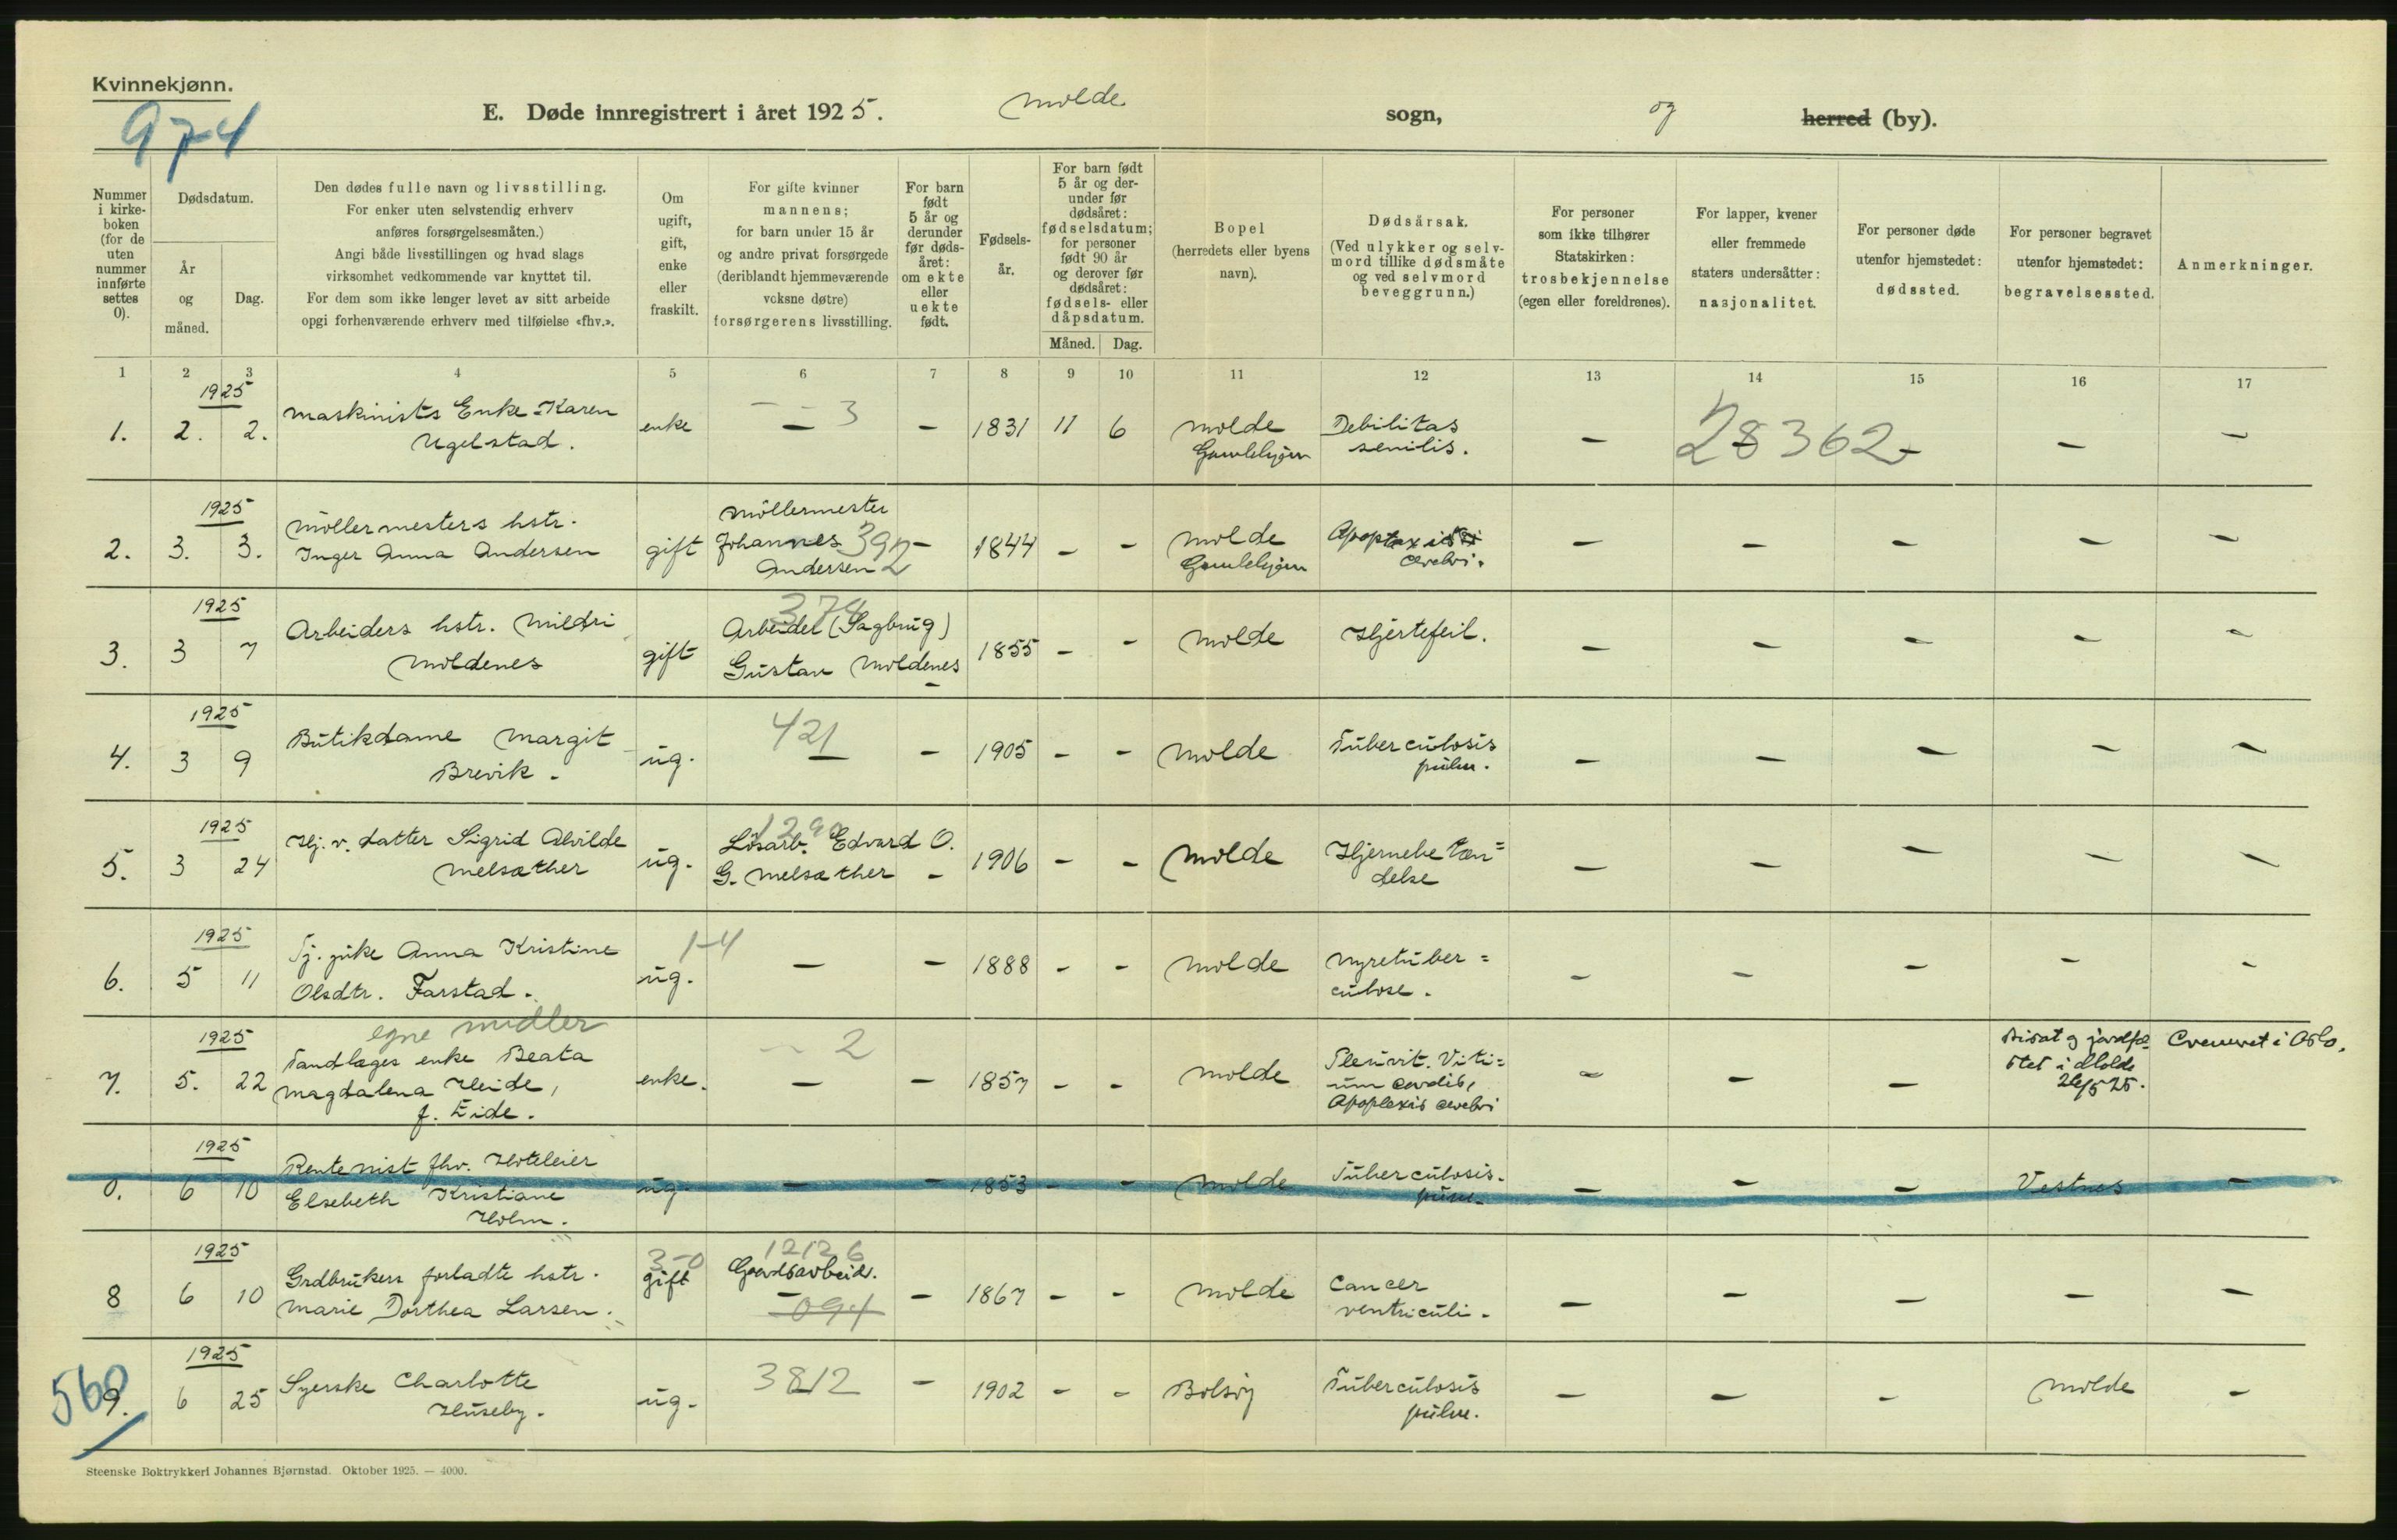 Kvinnekjønn.
974
E. Døde innregistrert i året 1925.
Molde
sogn,
og
herred (by).
Nummer i kirke-boken (for de uten nummer innførte settes 0).
Dødsdatum.
År og måned.
Dag.
Den dødes fulle navn og livsstilling.
For enker uten selvstendig erhverv
anføres forsørgelsesmåten.)
Angi både livsstillingen og hvad slags
virksomhet vedkommende var knyttet til.
For dem som ikke lenger levet av sitt arbeide
opgi forhenværende erhverv med tilføielse «fhv.».
Om ugift, gift, enke eller fraskilt.
For gifte kvinner
mannens;
for barn under 15 år
og andre privat forsørgede
(deriblandt hjemmeværende
voksne døtre)
forsørgerens livsstilling.
For barn født 5 år og derunder før døds-året: om ekte eller uekte født.
Fødsels-år.
For barn født 5 år og der-under før dødsåret: fødselsdatum; for personer født 90 år og derover før dødsåret: fødsels- eller dåpsdatum.
Måned.
Dag.
Bopel
(herredets eller byens
navn).
Dødsårsak.
(Ved ulykker og selv-
mord tillike dødsmåte
og ved selvmord
beveggrunn.)
For personer
som ikke tilhører
Statskirken:
trosbekjennelse
(egen eller foreldrenes).
For lapper, kvener
eller fremmede
staters undersåtter:
nasjonalitet.
For personer døde
utenfor hjemstedet:
dødssted.
For personer begravet
utenfor hjemstedet:
begravelsessted.
Anmerkninger.
1 2 3 4 5 6 7 8 9 10 11 12 13 14 15 16 17
1925
1. 2. 2. Maskinists Enke Karen
Ugelstad.
enke — 3 — 1831 11 6 Molde
Debilitas
senilis.
— 28362 — — —
1925
2. 3. 3. Möllermesters hstr.
Inger Anna Andersen
gift Möllermester
Johannes 392
Andersen
— 1844 — — Molde
cerebri.
— — — — —
1925
3. 3 7 Arbeiders hstr. Mildri
Moldenes
gift 374
Arbeider (Sagbrug)
Gustav Moldenes
— 1855 — — Molde Hjertefeil. — — — — —
1925
4. 3 9 Butikdame Margit
Brevik.
ug. 421
— — 1905 — — Molde Tuberculosis
pulm.
— — — — —
1925
5. 3 24 Hj. v. datter Sigrid Alvilde
Melsæther
ug. Lösarb. Edvard O.
G. Melsæther
— 1906 — — Molde Hjernebetæn=
delse
— — — — —
1925
6. 5 11 Tj. pike Anna Kristine
Olsdtr. Farstad.
ug. 1-4
— — 1888 — — Molde Nyretuber=
culose.
— — — — —
egne midler
1925
7. 5. 22 Tandlæges enke Beata
Magdalena Heide,
f. Eide.
enke. — 2
— — 1857 — — Molde Pleurit. Viti=
um cordis,
Apoplexis cerebri
— — —
Bisat og jordfæ
stet i Molde
26/5 25.
Cremeret i Oslo.
1925
0. 6 10 Rentenist fhv. Hoteleier
Elsebeth Kristiane
Holm.
ug. — — 1853 — — Molde Tuberculosis.
pulm.
— — — Vestnes —
1925
8 6 10 Grdbrukers forladte hstr.
Marie Dorthea Larsen.
3-0
gift
12126
Gaardsarbeid.
094
— 1867 — — Molde Cancer
ventriculi.
— — — — —
1925
560
9. 6 25 Syerske Charlotte
Huseby.
ug. 3812 — 1902 — — Bolsöy Tuberculosis
pulm.
— — — Molde —
Steenske Boktrykkeri Johannes Bjørnstad. Oktober 1925. — 4000.